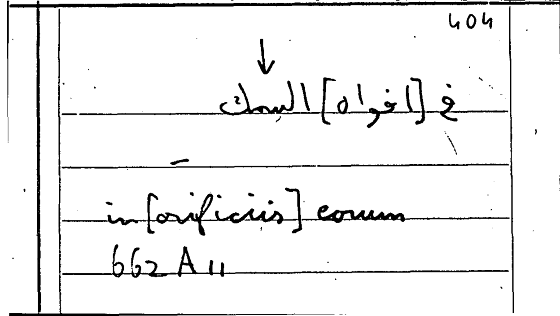 404
↓
في [افواه] السمك
–
in [orificiis] eorum
662 A 11